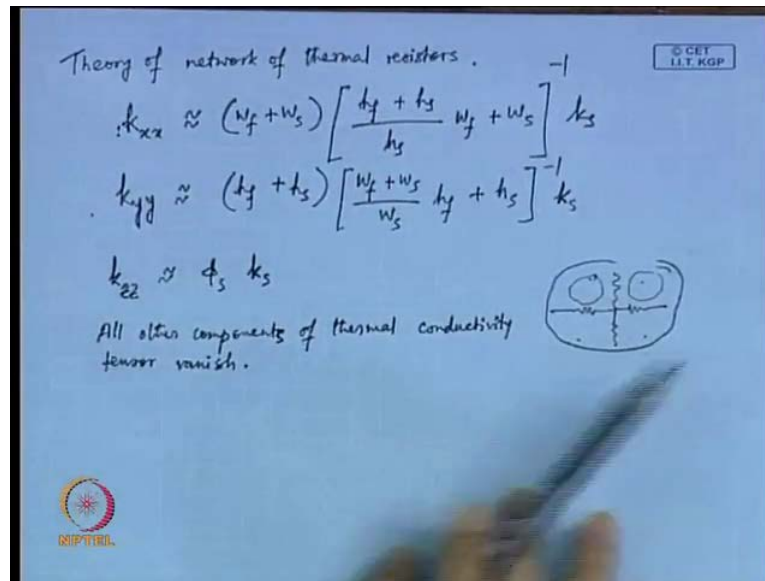 Theory of network of thermal resistors.
© CET
I.I.T. KGP
k_xx ≈ (w_f + w_s) [ (h_f + h_s)/h_s w_f + w_s ]^-1 k_s
k_yy ≈ (h_f + h_s) [ (w_f + w_s)/w_s h_f + h_s ]^-1 k_s
k_zz ≈ ϕ_s k_s
All other components of thermal conductivity
tensor vanish.
NPTEL